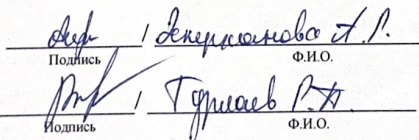 / Зекерманова А.Р.
Подпись Ф.И.О.
/ Гурлаев Р.А.
Подпись Ф.И.О.